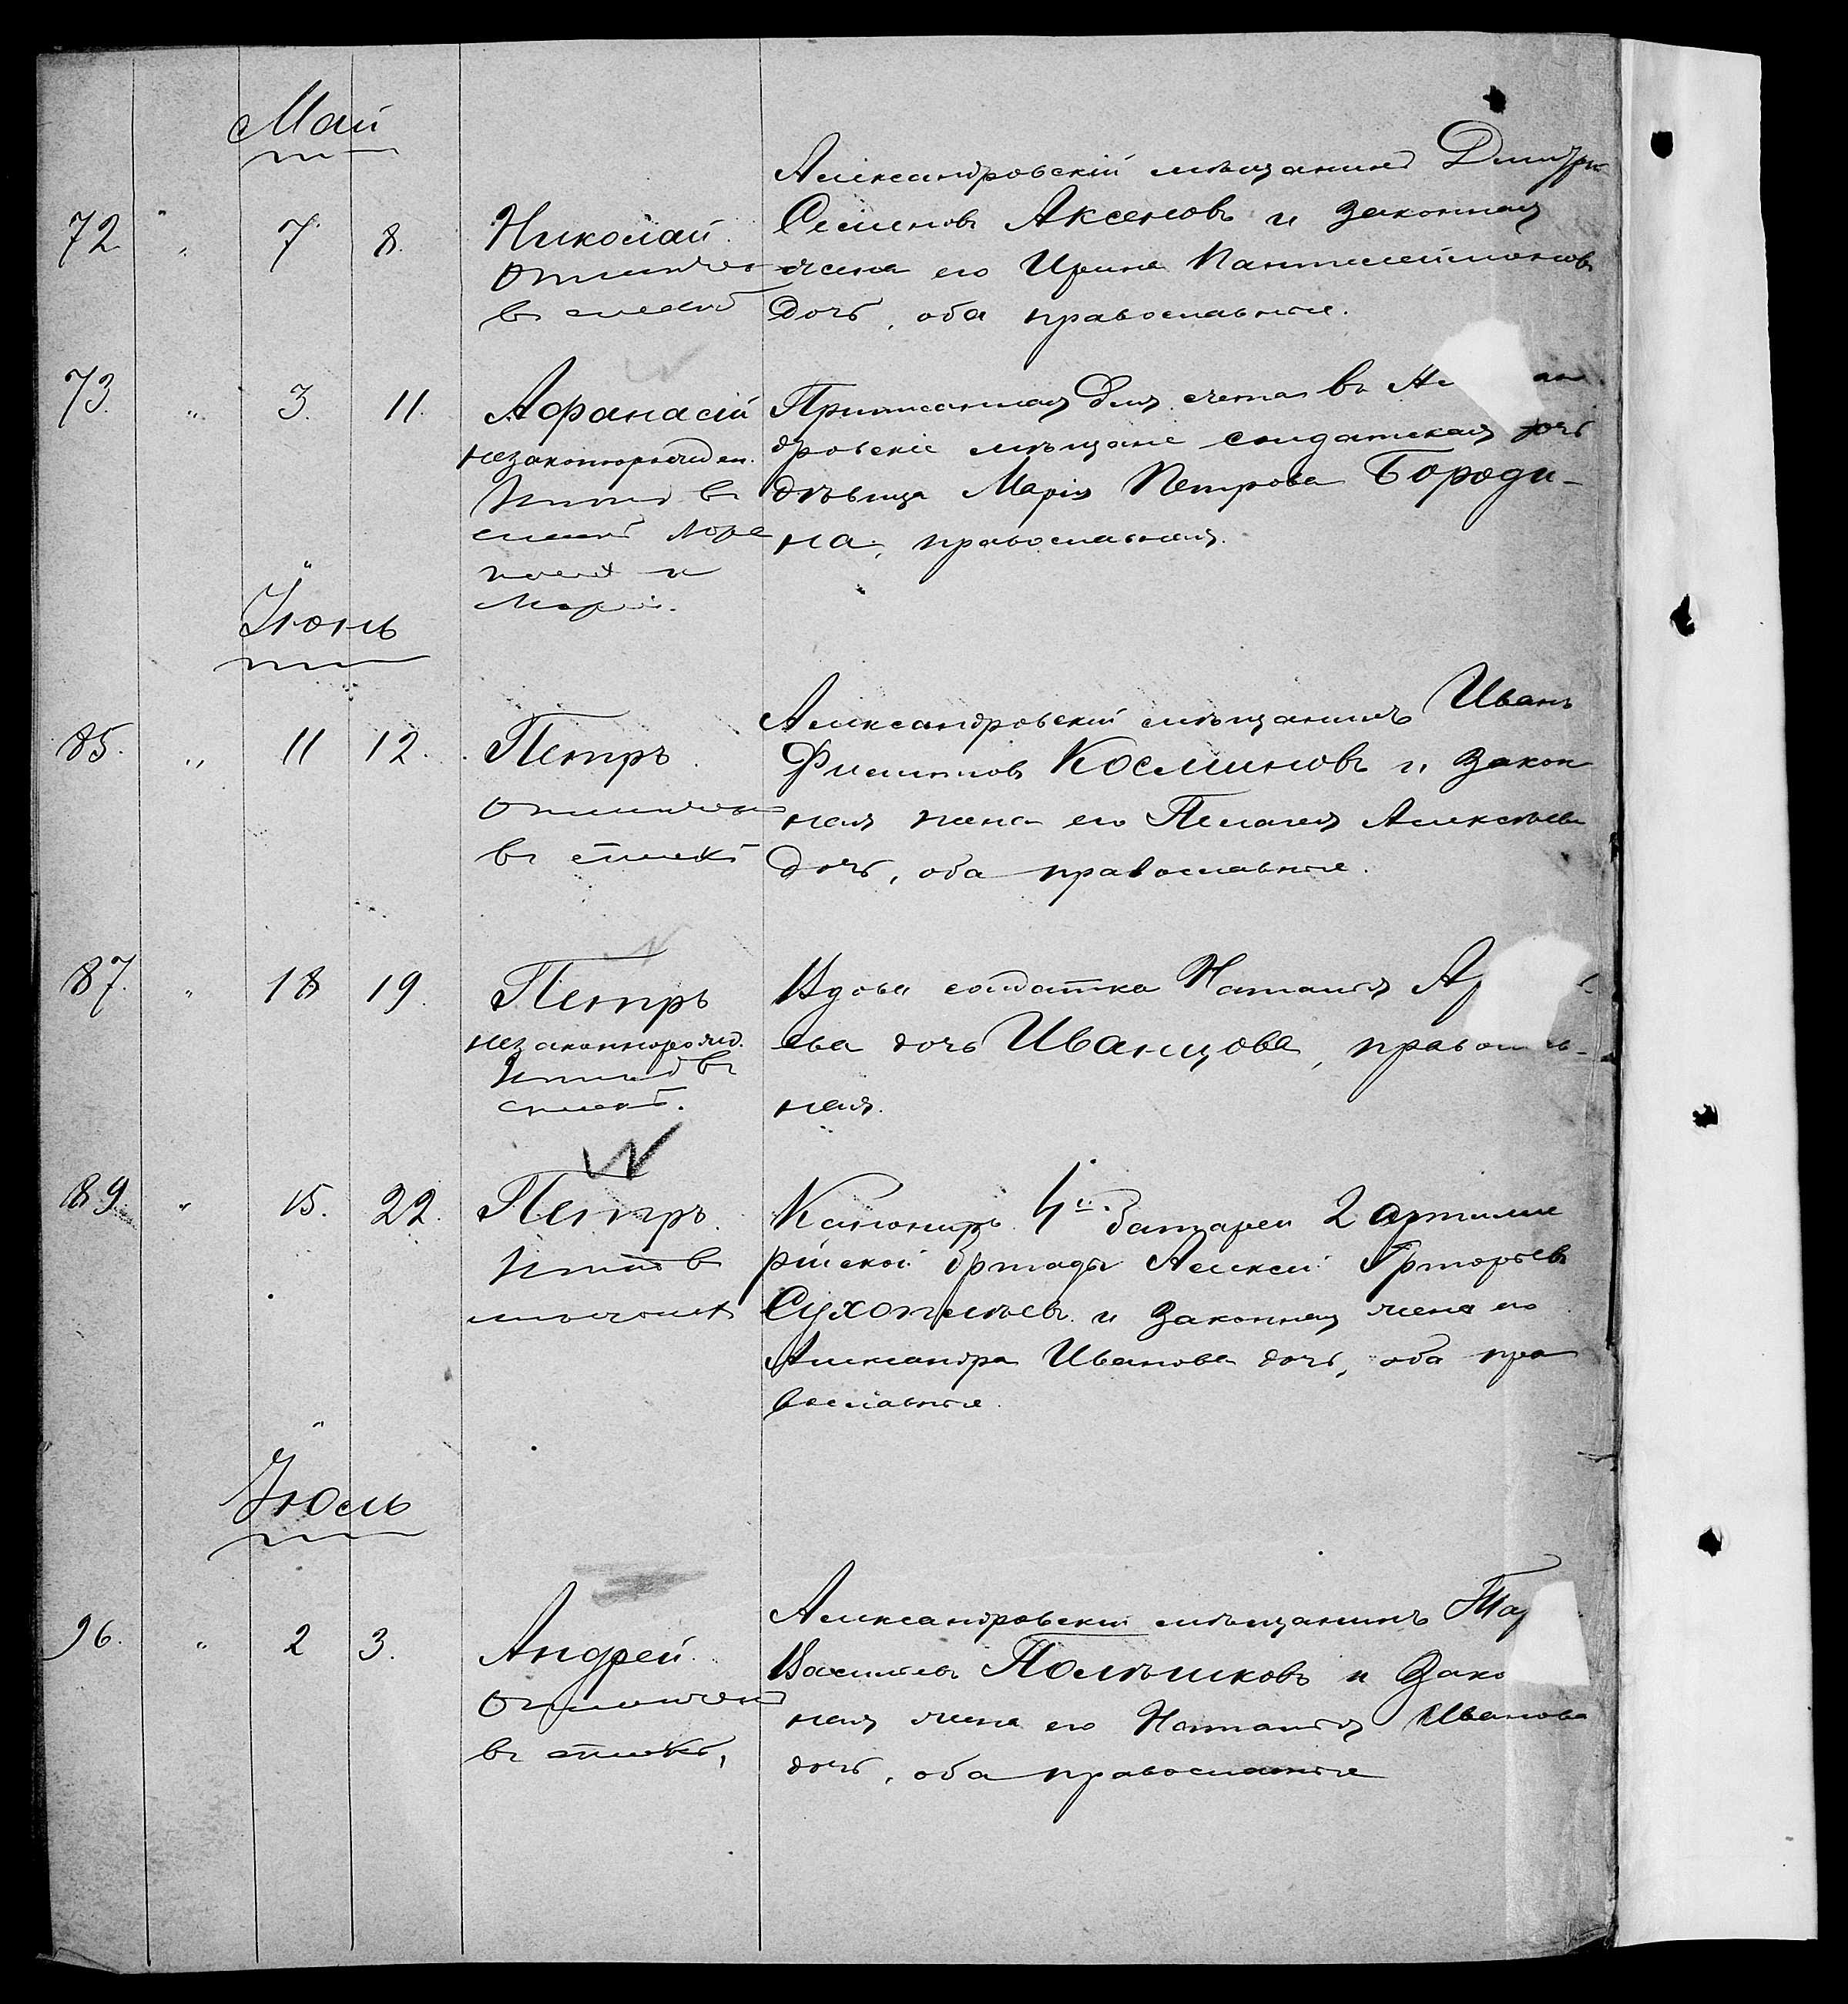 Май
72. " 7. 8. Николай.
отмечен
въ списке
Александровскій мѣщанинъ Дмитрій
Семеновъ Аксеновъ и законная
жена его Ирина Пантелеймонова
дочь, оба православные.
73. " 3. 11. Афанасій
незаконнорожден.
въ
списке
и
Марія.
Приписанная для счета въ Ал ан
дровскіе мѣщане солдатская дочь
дѣвица Марія Петрова Бороди-
на, православная.
Іюнь
85. " 11 12. Петръ.
отмечен
въ списке
Александровскій мѣщанинъ Иванъ
Филиповъ Косминовъ и закон
ная жена его Пелагея Алексѣева
дочь, оба православные.
87. " 18 19. Петръ
незаконнорожд.
въ
списке.
Вдова солдатка Наталія Ар
ева дочь Иванцова, православ-
ная.
89. " 15. 22. Петръ.
въ
Канониръ 4й батареи 2 артилле
рійской бригады Алексей Григорьевъ
Сухопльевъ и законная жена его
Александра Иванова дочь, оба пра
вославные.
Іюль
96. " 2 3. Андрей.
отмечен
въ списке,
Александровскій мѣщанинъ
Васильевъ Полѣшковъ и зако
ная жена его Наталія Иванова
дочь, оба православные